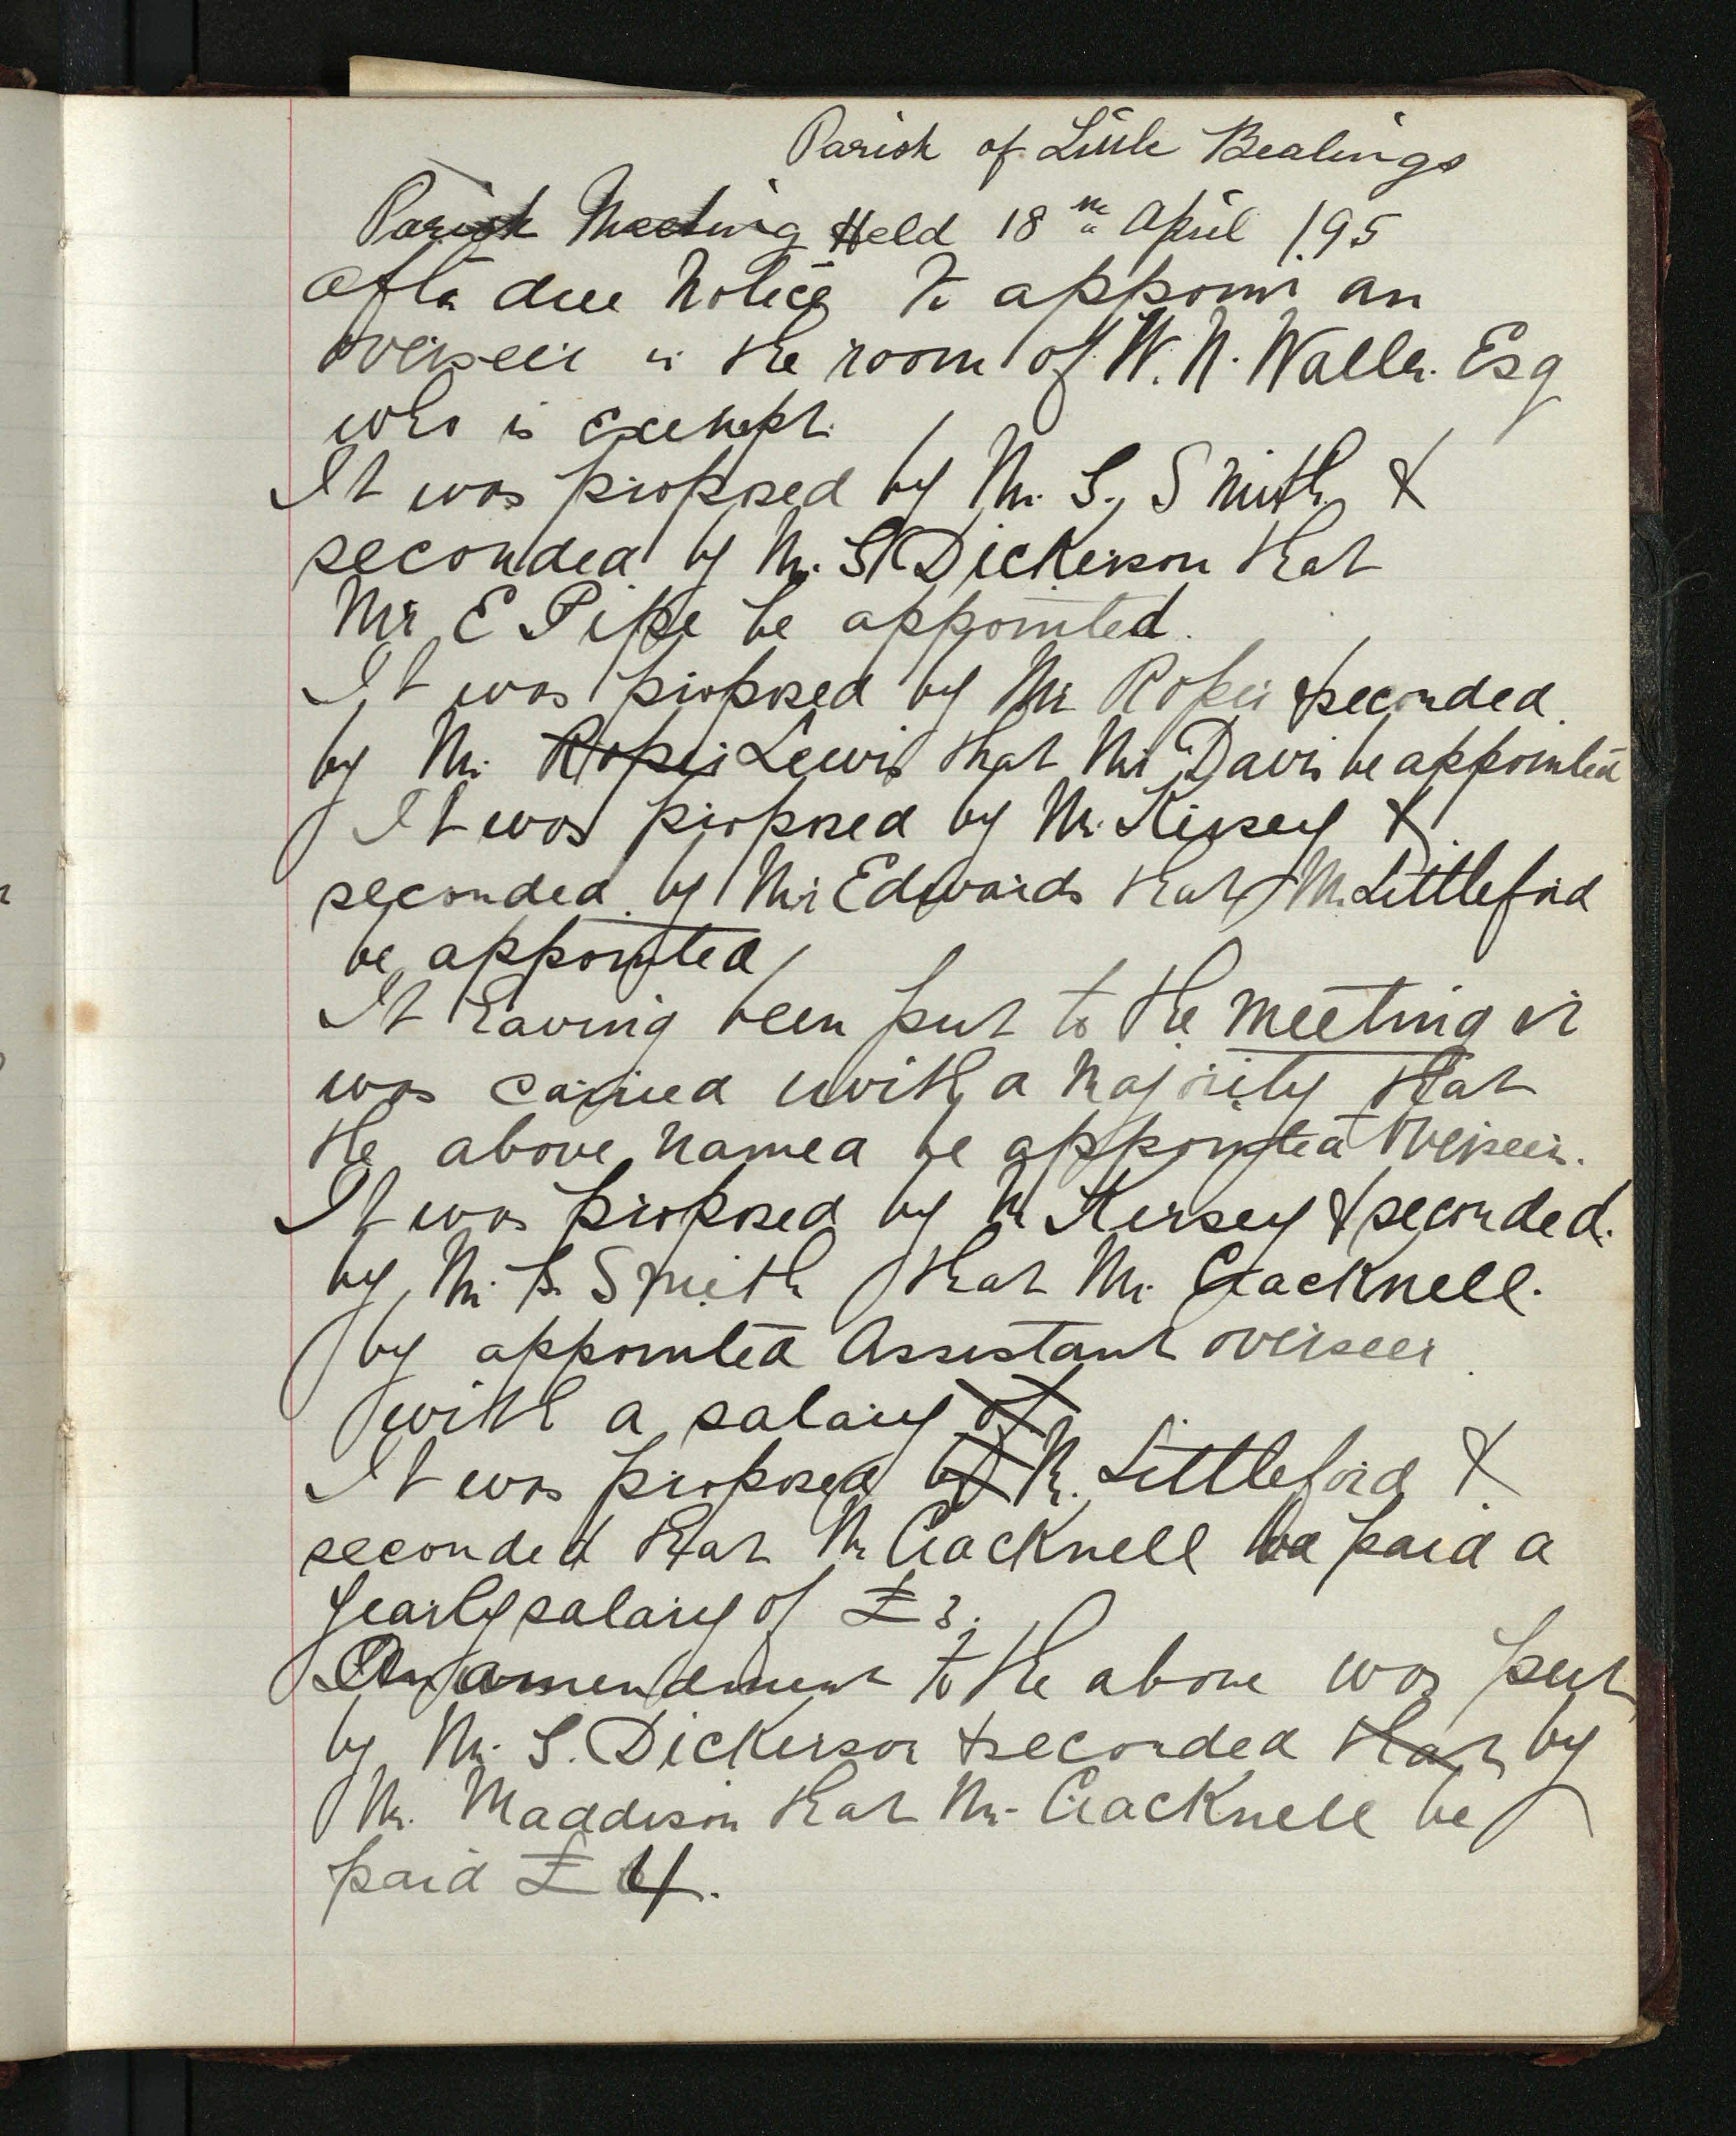 Parish of Little Bealings
Parish Meeting Held 18th April 195
after due Notice To appoint an
overseer in the room of W. N. Waller. Esq
who is exempt.
It was proposed by Mr. S. Smith &
seconded by Mr. S Dickerson that
Mr E Pipe be appointed.
It was proposed by Mr Roper & seconded.
by Mr. Roper Lewis that Mr Davis be appointed
It was proposed by Mr. Kersey &
seconded by Mr Edwards that Mr. Littleford
be appointed
It having been put to the meeting it
was carried with a majority that
the above named be appointed Overseer.
It was proposed by Mr Kersey & seconded.
by Mr. S. Smith that Mr. Cracknell.
by appointed Assistant overseer
with a salary of
It was proposed by Mr. Littleford &
seconded that Mr Cracknell be paid a
yearly salary of £3.
An amendment to the above was put
by Mr. S. Dickerson & seconded that by
Mr. Maddison that Mr. Cracknell be
paid £4.